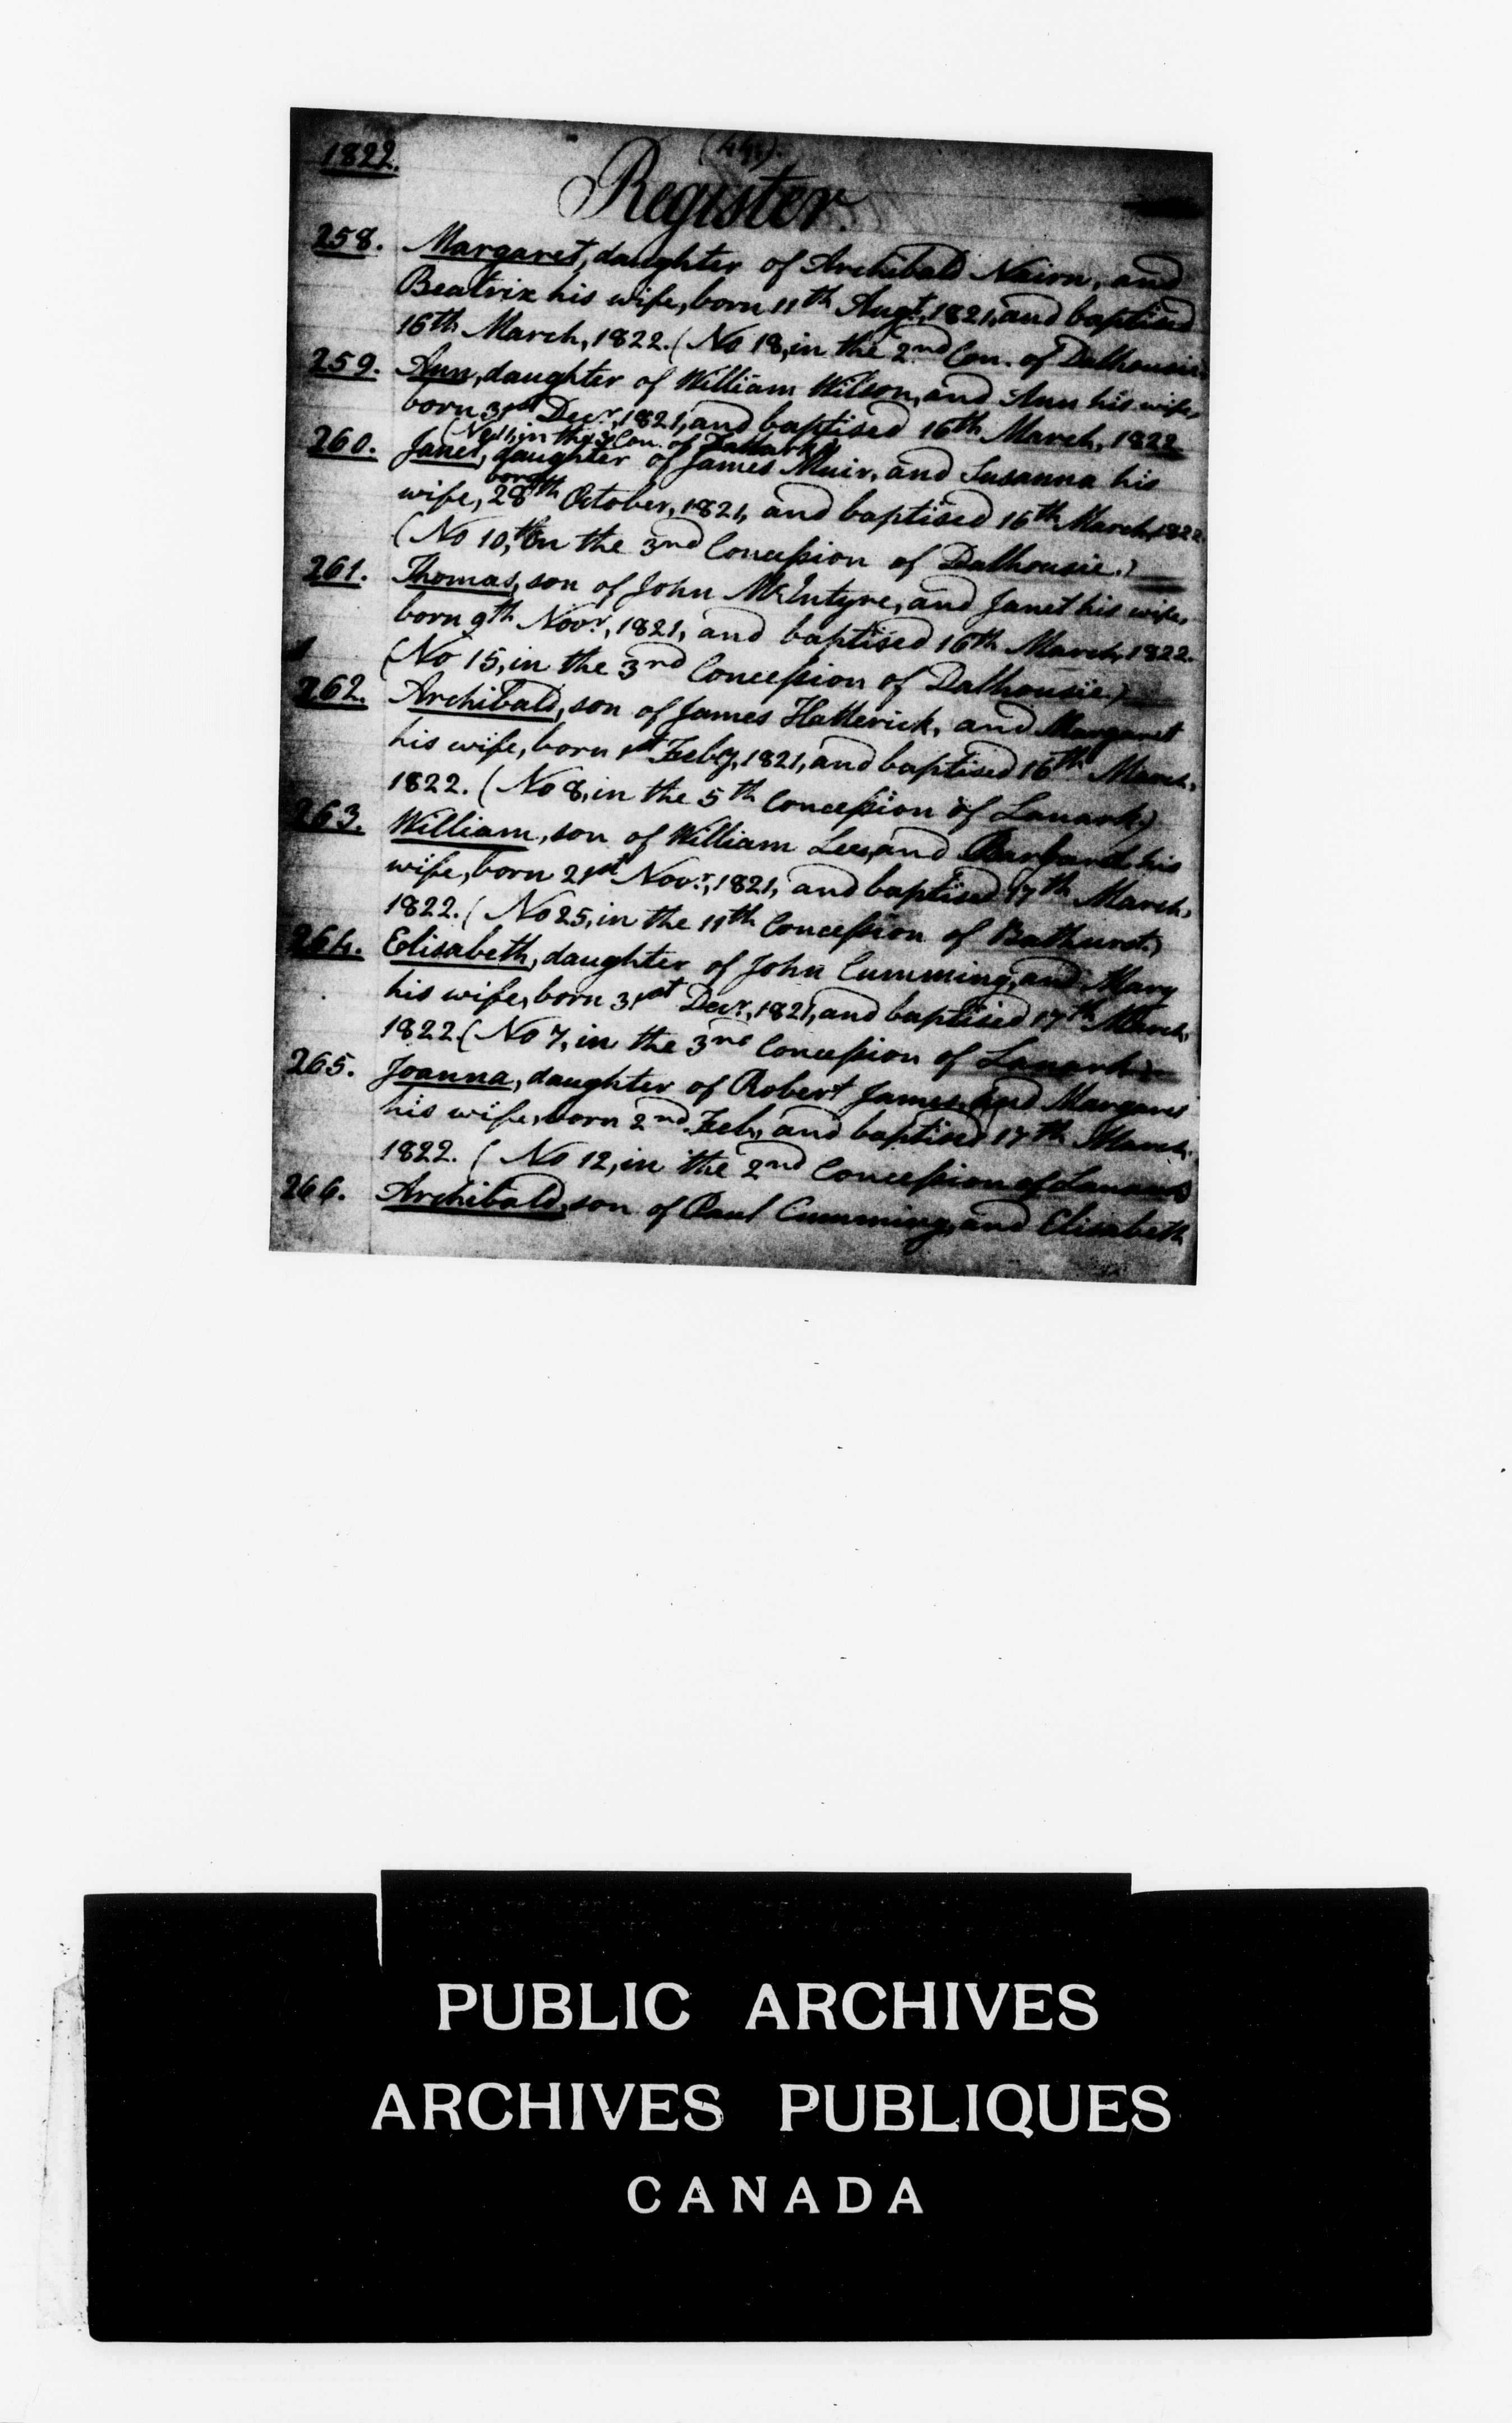 1822.
Register.
258. Margaret, daughter of Archibald Nairn, and
Beatrix his wife, born 11th Augt, 1821, and baptised
16th March, 1822. (No 18, in the 2nd Con. of Dalhousie.
259. Ann, daughter of William Wilson, and Ann his wife,
born 31st Decr, 1821, and baptised 16th March, 1822
(No 11, in the 3 Con. of Lanark)
260. Janet, daughter of James Muir, and Susanna his
born
wife, 28th October, 1821, and baptised 16th March, 1822.
(No 10, in the 3rd Concession of Dalhousie.)
261. Thomas, son of John McIntyre, and Janet his wife,
born 9th Novr, 1821, and baptised 16th March, 1822.
(No 15, in the 3rd Concession of Dalhousie.)
262. Archibald, son of James Hatterick, and Margaret
his wife, born 1st Feby, 1821, and baptised 16th March,
1822. (No 8, in the 5th Concession of Lanark)
263. William, son of William Lees, and Barbara his
wife, born 21st Novr, 1821, and baptised 17th March,
1822. (No 25, in the 11th Concession of Bathurst)
264. Elisabeth, daughter of John Cumming, and Mary
his wife, born 31st Decr, 1821, and baptised 17th March,
1822. (No 7, in the 3rd Concession of Lanark)
265. Joanna, daughter of Robert James, and Margaret
his wife, born 2nd Feb, and baptised 17th March,
1822. (No 12, in the 2nd Concession of Lanark)
266. Archibald, son of Paul Cumming, and Elisabeth
PUBLIC ARCHIVES
ARCHIVES PUBLIQUES
CANADA